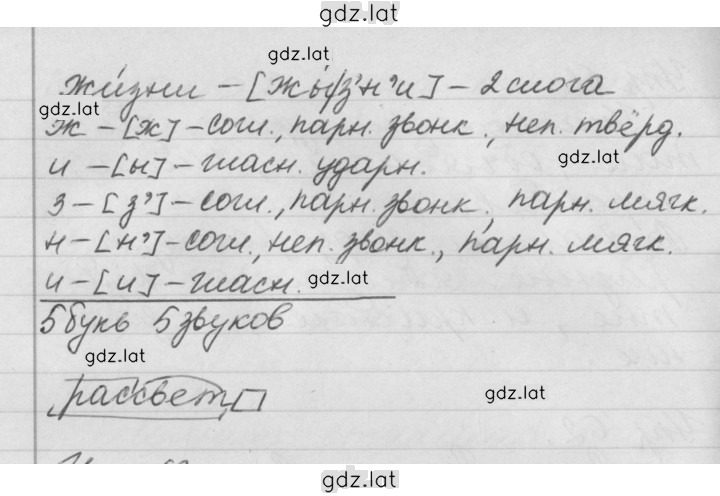 gdz.lat
gdz.lat
жи́зни – [жы́/з'н'и] – 2 слога
gdz.lat
ж – [ж] – согл., парн. звонк., неп. твёрд.
и – [ы] – гласн. ударн.
gdz.lat
з – [з'] – согл., парн. звонк., парн. мягк.
н – [н'] – согл., неп. звонк., парн. мягк.
и – [и] – гласн.
gdz.lat
5 букв 5 звуков
gdz.lat
рассвет
gdz.lat
gdz.lat